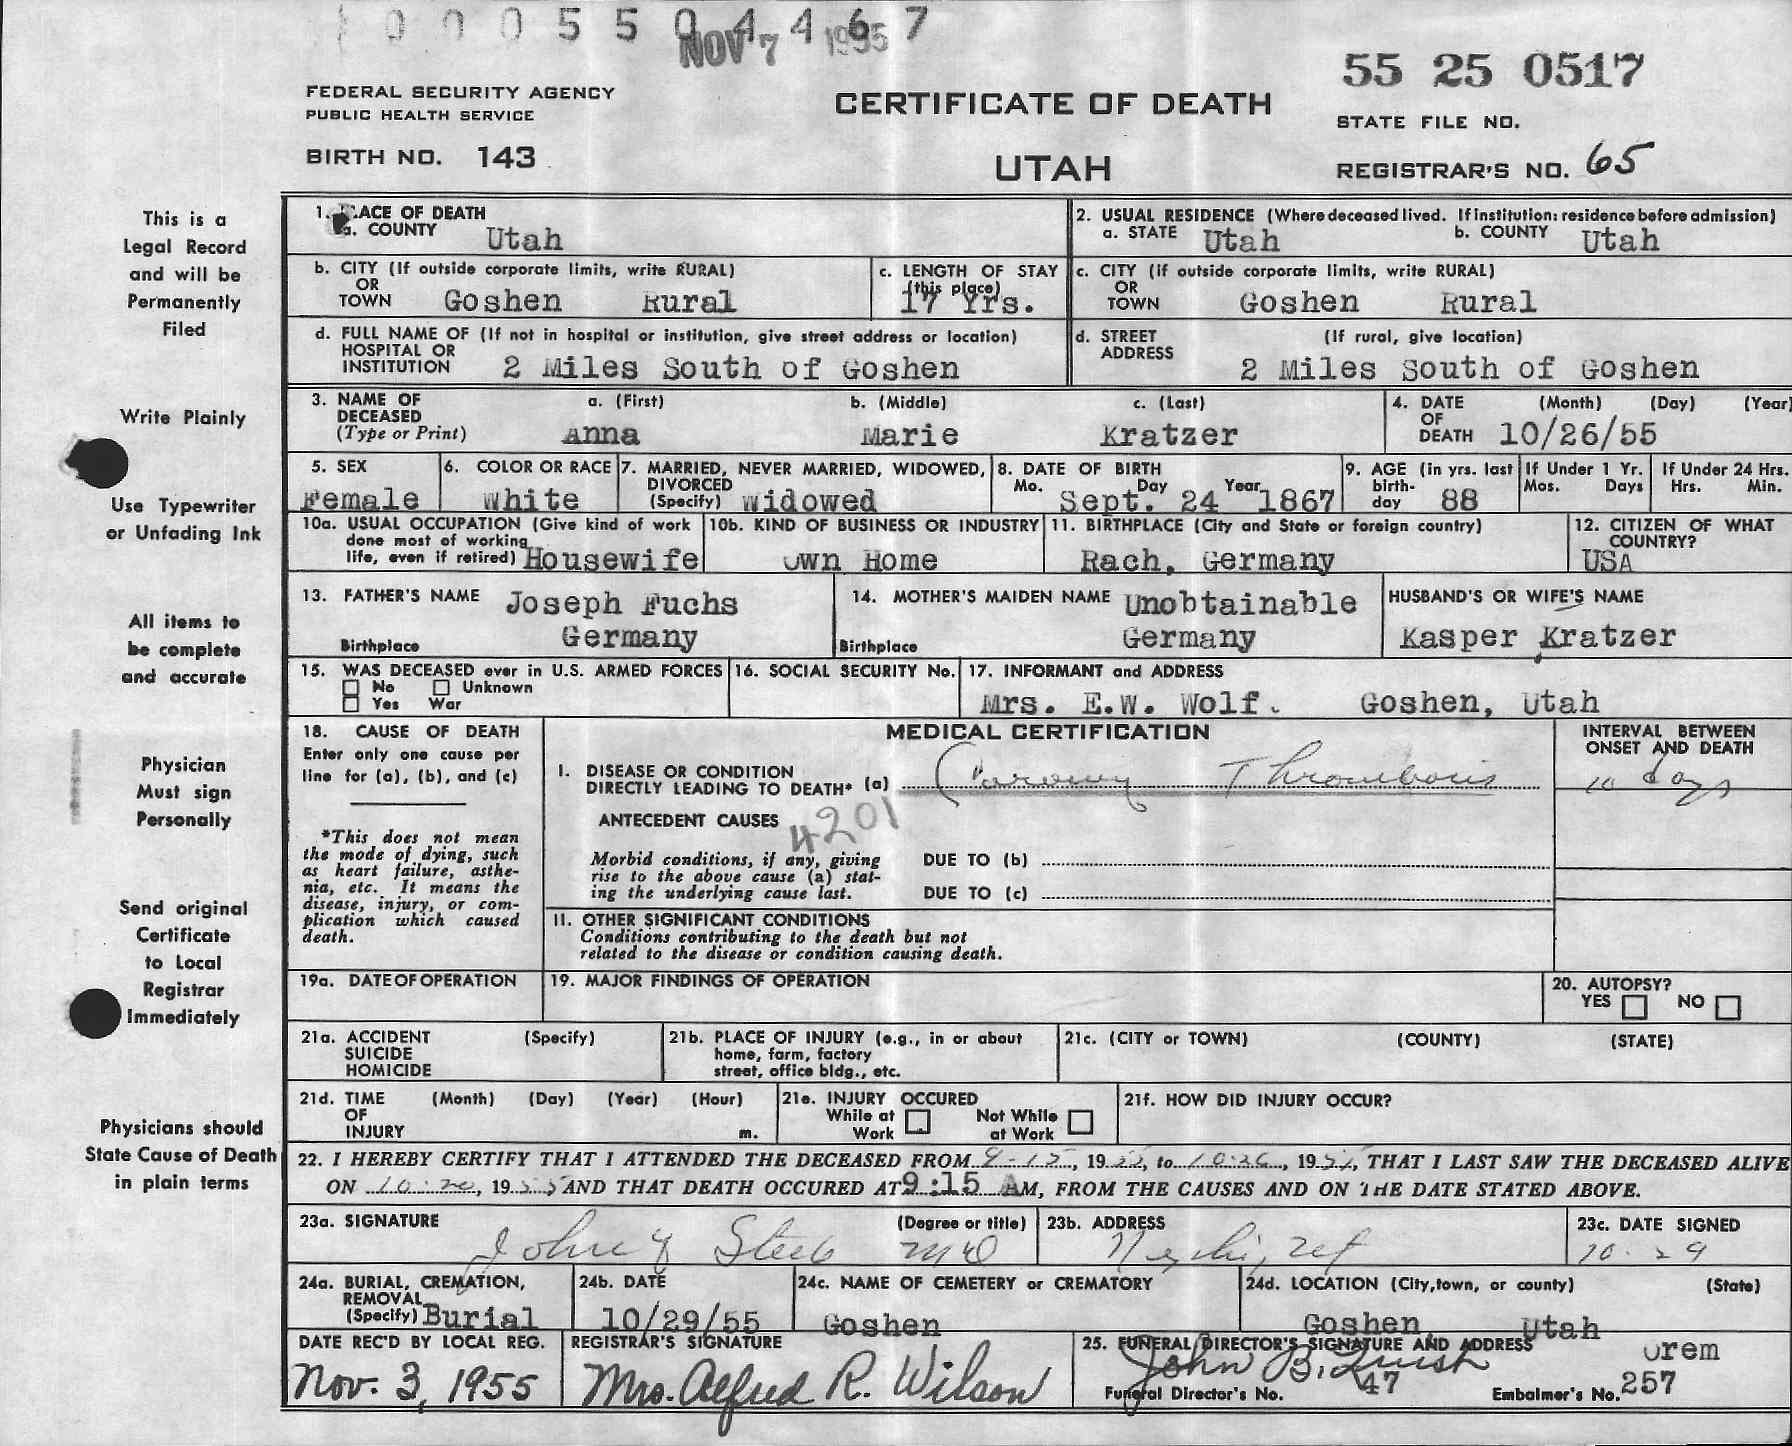 0 0 0 5 5 0 4 4 6 7
NOV 7 1955
55 25 0517
FEDERAL SECURITY AGENCY
PUBLIC HEALTH SERVICE
CERTIFICATE OF DEATH
STATE FILE NO.
BIRTH NO. 143
UTAH
REGISTRAR'S NO. 65
This is a
Legal Record
and will be
Permanently
Filed
Write Plainly
Use Typewriter
or Unfading Ink
All items to
be complete
and accurate
Physician
Must sign
Personally
Send original
Certificate
to Local
Registrar
Immediately
Physicians should
State Cause of Death
in plain terms
1. PLACE OF DEATH
a. COUNTY Utah
2. USUAL RESIDENCE (Where deceased lived. If institution: residence before admission)
a. STATE Utah b. COUNTY Utah
b. CITY (If outside corporate limits, write RURAL)
OR
TOWN Goshen Rural
c. LENGTH OF STAY
(this place)
17 Yrs.
c. CITY (If outside corporate limits, write RURAL)
OR
TOWN Goshen Rural
d. FULL NAME OF (If not in hospital or institution, give street address or location)
HOSPITAL OR
INSTITUTION 2 Miles South of Goshen
d. STREET (If rural, give location)
ADDRESS
2 Miles South of Goshen
3. NAME OF a. (First) b. (Middle) c. (Last)
DECEASED
(Type or Print) Anna Marie Kratzer
4. DATE (Month) (Day) (Year)
OF
DEATH 10/26/55
5. SEX
Female
6. COLOR OR RACE
White
7. MARRIED, NEVER MARRIED, WIDOWED,
DIVORCED
(Specify) Widowed
8. DATE OF BIRTH
Mo. Day Year
Sept. 24 1867
9. AGE (in yrs. last
birth-
day 88
If Under 1 Yr.
Mos. Days
If Under 24 Hrs.
Hrs. Min.
10a. USUAL OCCUPATION (Give kind of work
done most of working
life, even if retired) Housewife
10b. KIND OF BUSINESS OR INDUSTRY
Own Home
11. BIRTHPLACE (City and State or foreign country)
Rach, Germany
12. CITIZEN OF WHAT
COUNTRY?
USA
13. FATHER'S NAME Joseph Fuchs
Birthplace Germany
14. MOTHER'S MAIDEN NAME Unobtainable
Birthplace Germany
HUSBAND'S OR WIFE'S NAME
Kasper Kratzer
15. WAS DECEASED ever in U.S. ARMED FORCES
No Unknown
Yes War
16. SOCIAL SECURITY No.
17. INFORMANT and ADDRESS
Mrs. E.W. Wolf. Goshen, Utah
18. CAUSE OF DEATH
Enter only one cause per
line for (a), (b), and (c)
*This does not mean
the mode of dying, such
as heart failure, asthe-
nia, etc. It means the
disease, injury, or com-
plication which caused
death.
MEDICAL CERTIFICATION
I. DISEASE OR CONDITION
DIRECTLY LEADING TO DEATH* (a) Coronary Thrombosis
ANTECEDENT CAUSES
4201
Morbid conditions, if any, giving
rise to the above cause (a) stat-
ing the underlying cause last.
DUE TO (b)
DUE TO (c)
II. OTHER SIGNIFICANT CONDITIONS
Conditions contributing to the death but not
related to the disease or condition causing death.
INTERVAL BETWEEN
ONSET AND DEATH
10 days
19a. DATE OF OPERATION
19. MAJOR FINDINGS OF OPERATION
20. AUTOPSY?
YES NO
21a. ACCIDENT (Specify)
SUICIDE
HOMICIDE
21b. PLACE OF INJURY (e.g., in or about
home, farm, factory
street, office bldg., etc.
21c. (CITY or TOWN) (COUNTY) (STATE)
21d. TIME (Month) (Day) (Year) (Hour)
OF
INJURY m.
21e. INJURY OCCURED
While at Not While
Work at Work
21f. HOW DID INJURY OCCUR?
22. I HEREBY CERTIFY THAT I ATTENDED THE DECEASED FROM 9-15, 1955, to 10-26, 1955, THAT I LAST SAW THE DECEASED ALIVE
ON 10-20, 1955 AND THAT DEATH OCCURED AT 9:15 AM, FROM THE CAUSES AND ON THE DATE STATED ABOVE.
23a. SIGNATURE (Degree or title)
John Steele MD
23b. ADDRESS
23c. DATE SIGNED
10-29
24a. BURIAL, CREMATION,
REMOVAL
(Specify) Burial
24b. DATE
10/29/55
24c. NAME OF CEMETERY or CREMATORY
Goshen
24d. LOCATION (City, town, or county) (State)
Goshen, Utah
DATE REC'D BY LOCAL REG.
Nov. 3, 1955
REGISTRAR'S SIGNATURE
Mrs. Alfred R. Wilson
25. FUNERAL DIRECTOR'S SIGNATURE AND ADDRESS
John B. Orem
Funeral Director's No. 47 Embalmer's No. 257